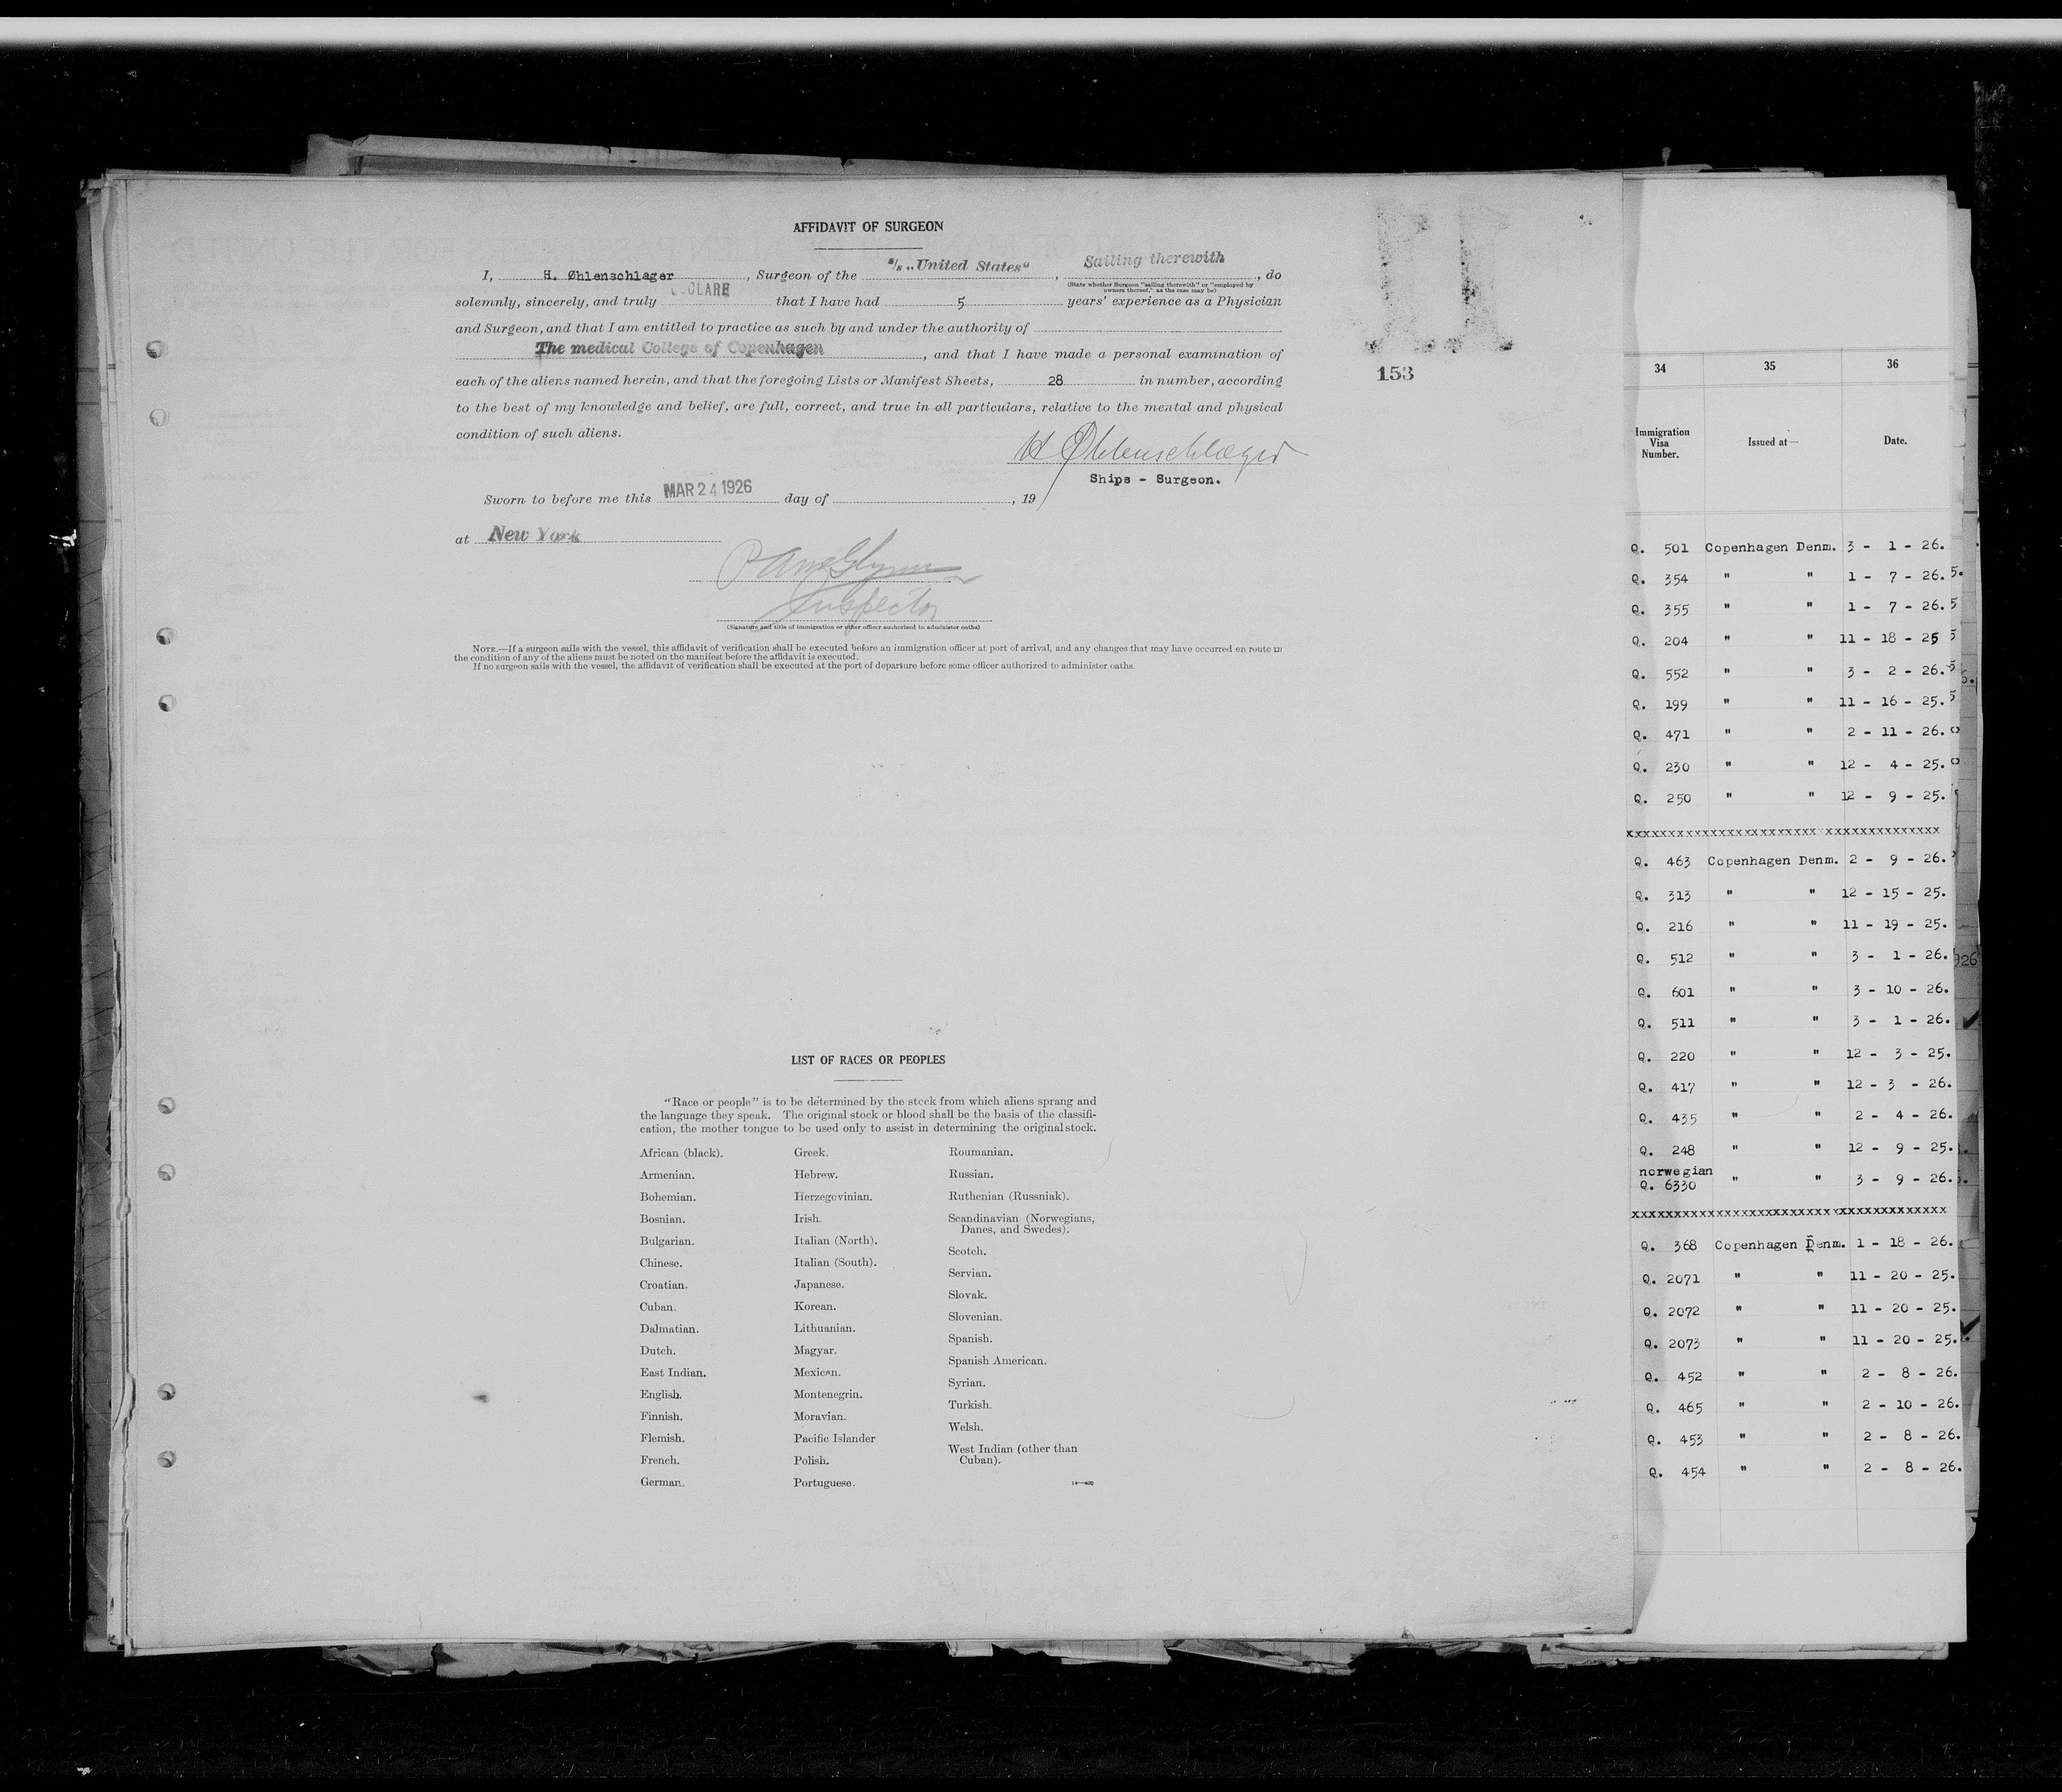 AFFIDAVIT OF SURGEON
I, H. Øhlenschlager, Surgeon of the s/s „United States“, Sailing therewith, do
(State whether Surgeon "sailing therewith" or "employed by owners thereof," as the case may be)
solemnly, sincerely, and truly DECLARE that I have had 5 years' experience as a Physician
and Surgeon, and that I am entitled to practice as such by and under the authority of
The medical College of Copenhagen, and that I have made a personal examination of
each of the aliens named herein, and that the foregoing Lists or Manifest Sheets, 28 in number, according
to the best of my knowledge and belief, are full, correct, and true in all particulars, relative to the mental and physical
condition of such aliens.
H Øhlenschlæger
Ships - Surgeon.
Sworn to before me this MAR 24 1926 day of , 19
at New York
Inspector
(Signature and title of immigration or other officer authorized to administer oaths)
NOTE.—If a surgeon sails with the vessel, this affidavit of verification shall be executed before an immigration officer at port of arrival, and any changes that may have occurred en route in
the condition of any of the aliens must be noted on the manifest before the affidavit is executed.
If no surgeon sails with the vessel, the affidavit of verification shall be executed at the port of departure before some officer authorized to administer oaths.
11
153
LIST OF RACES OR PEOPLES
"Race or people" is to be determined by the stock from which aliens sprang and
the language they speak. The original stock or blood shall be the basis of the classifi-
cation, the mother tongue to be used only to assist in determining the original stock.
African (black).
Armenian.
Bohemian.
Bosnian.
Bulgarian.
Chinese.
Croatian.
Cuban.
Dalmatian.
Dutch.
East Indian.
English.
Finnish.
Flemish.
French.
German.
Greek.
Hebrew.
Herzegovinian.
Irish.
Italian (North).
Italian (South).
Japanese.
Korean.
Lithuanian.
Magyar.
Mexican.
Montenegrin.
Moravian.
Pacific Islander
Polish.
Portuguese.
Roumanian.
Russian.
Ruthenian (Russniak).
Scandinavian (Norwegians,
Danes, and Swedes).
Scotch.
Servian.
Slovak.
Slovenian.
Spanish.
Spanish American.
Syrian.
Turkish.
Welsh.
West Indian (other than
Cuban).
34 35 36
Immigration Visa Number. Issued at— Date.
Q. 501 Copenhagen Denm. 3 - 1 - 26.
Q. 354 " " 1 - 7 - 26.
Q. 355 " " 1 - 7 - 26.
Q. 204 " " 11 - 18 - 25
Q. 552 " " 3 - 2 - 26.
Q. 199 " " 11 - 16 - 25.
Q. 471 " " 2 - 11 - 26.
Q. 230 " " 12 - 4 - 25.
Q. 250 " " 12 - 9 - 25.
xxxxxxxxxxxxxxxxxxxxxxxxxxxxxxxxxxxxxx
Q. 463 Copenhagen Denm. 2 - 9 - 26.
Q. 313 " " 12 - 15 - 25.
Q. 216 " " 11 - 19 - 25.
Q. 512 " " 3 - 1 - 26.
Q. 601 " " 3 - 10 - 26.
Q. 511 " " 3 - 1 - 26.
Q. 220 " " 12 - 3 - 25.
Q. 417 " " 12 - 3 - 26.
Q. 435 " " 2 - 4 - 26.
Q. 248 " " 12 - 9 - 25.
norwegian
Q. 6330 " " 3 - 9 - 26.
xxxxxxxxxxxxxxxxxxxxxxxxxxxxxxxxxxxxxx
Q. 368 Copenhagen Denm. 1 - 18 - 26.
Q. 2071 " " 11 - 20 - 25.
Q. 2072 " " 11 - 20 - 25.
Q. 2073 " " 11 - 20 - 25.
Q. 452 " " 2 - 8 - 26.
Q. 465 " " 2 - 10 - 26.
Q. 453 " " 2 - 8 - 26.
Q. 454 " " 2 - 8 - 26.